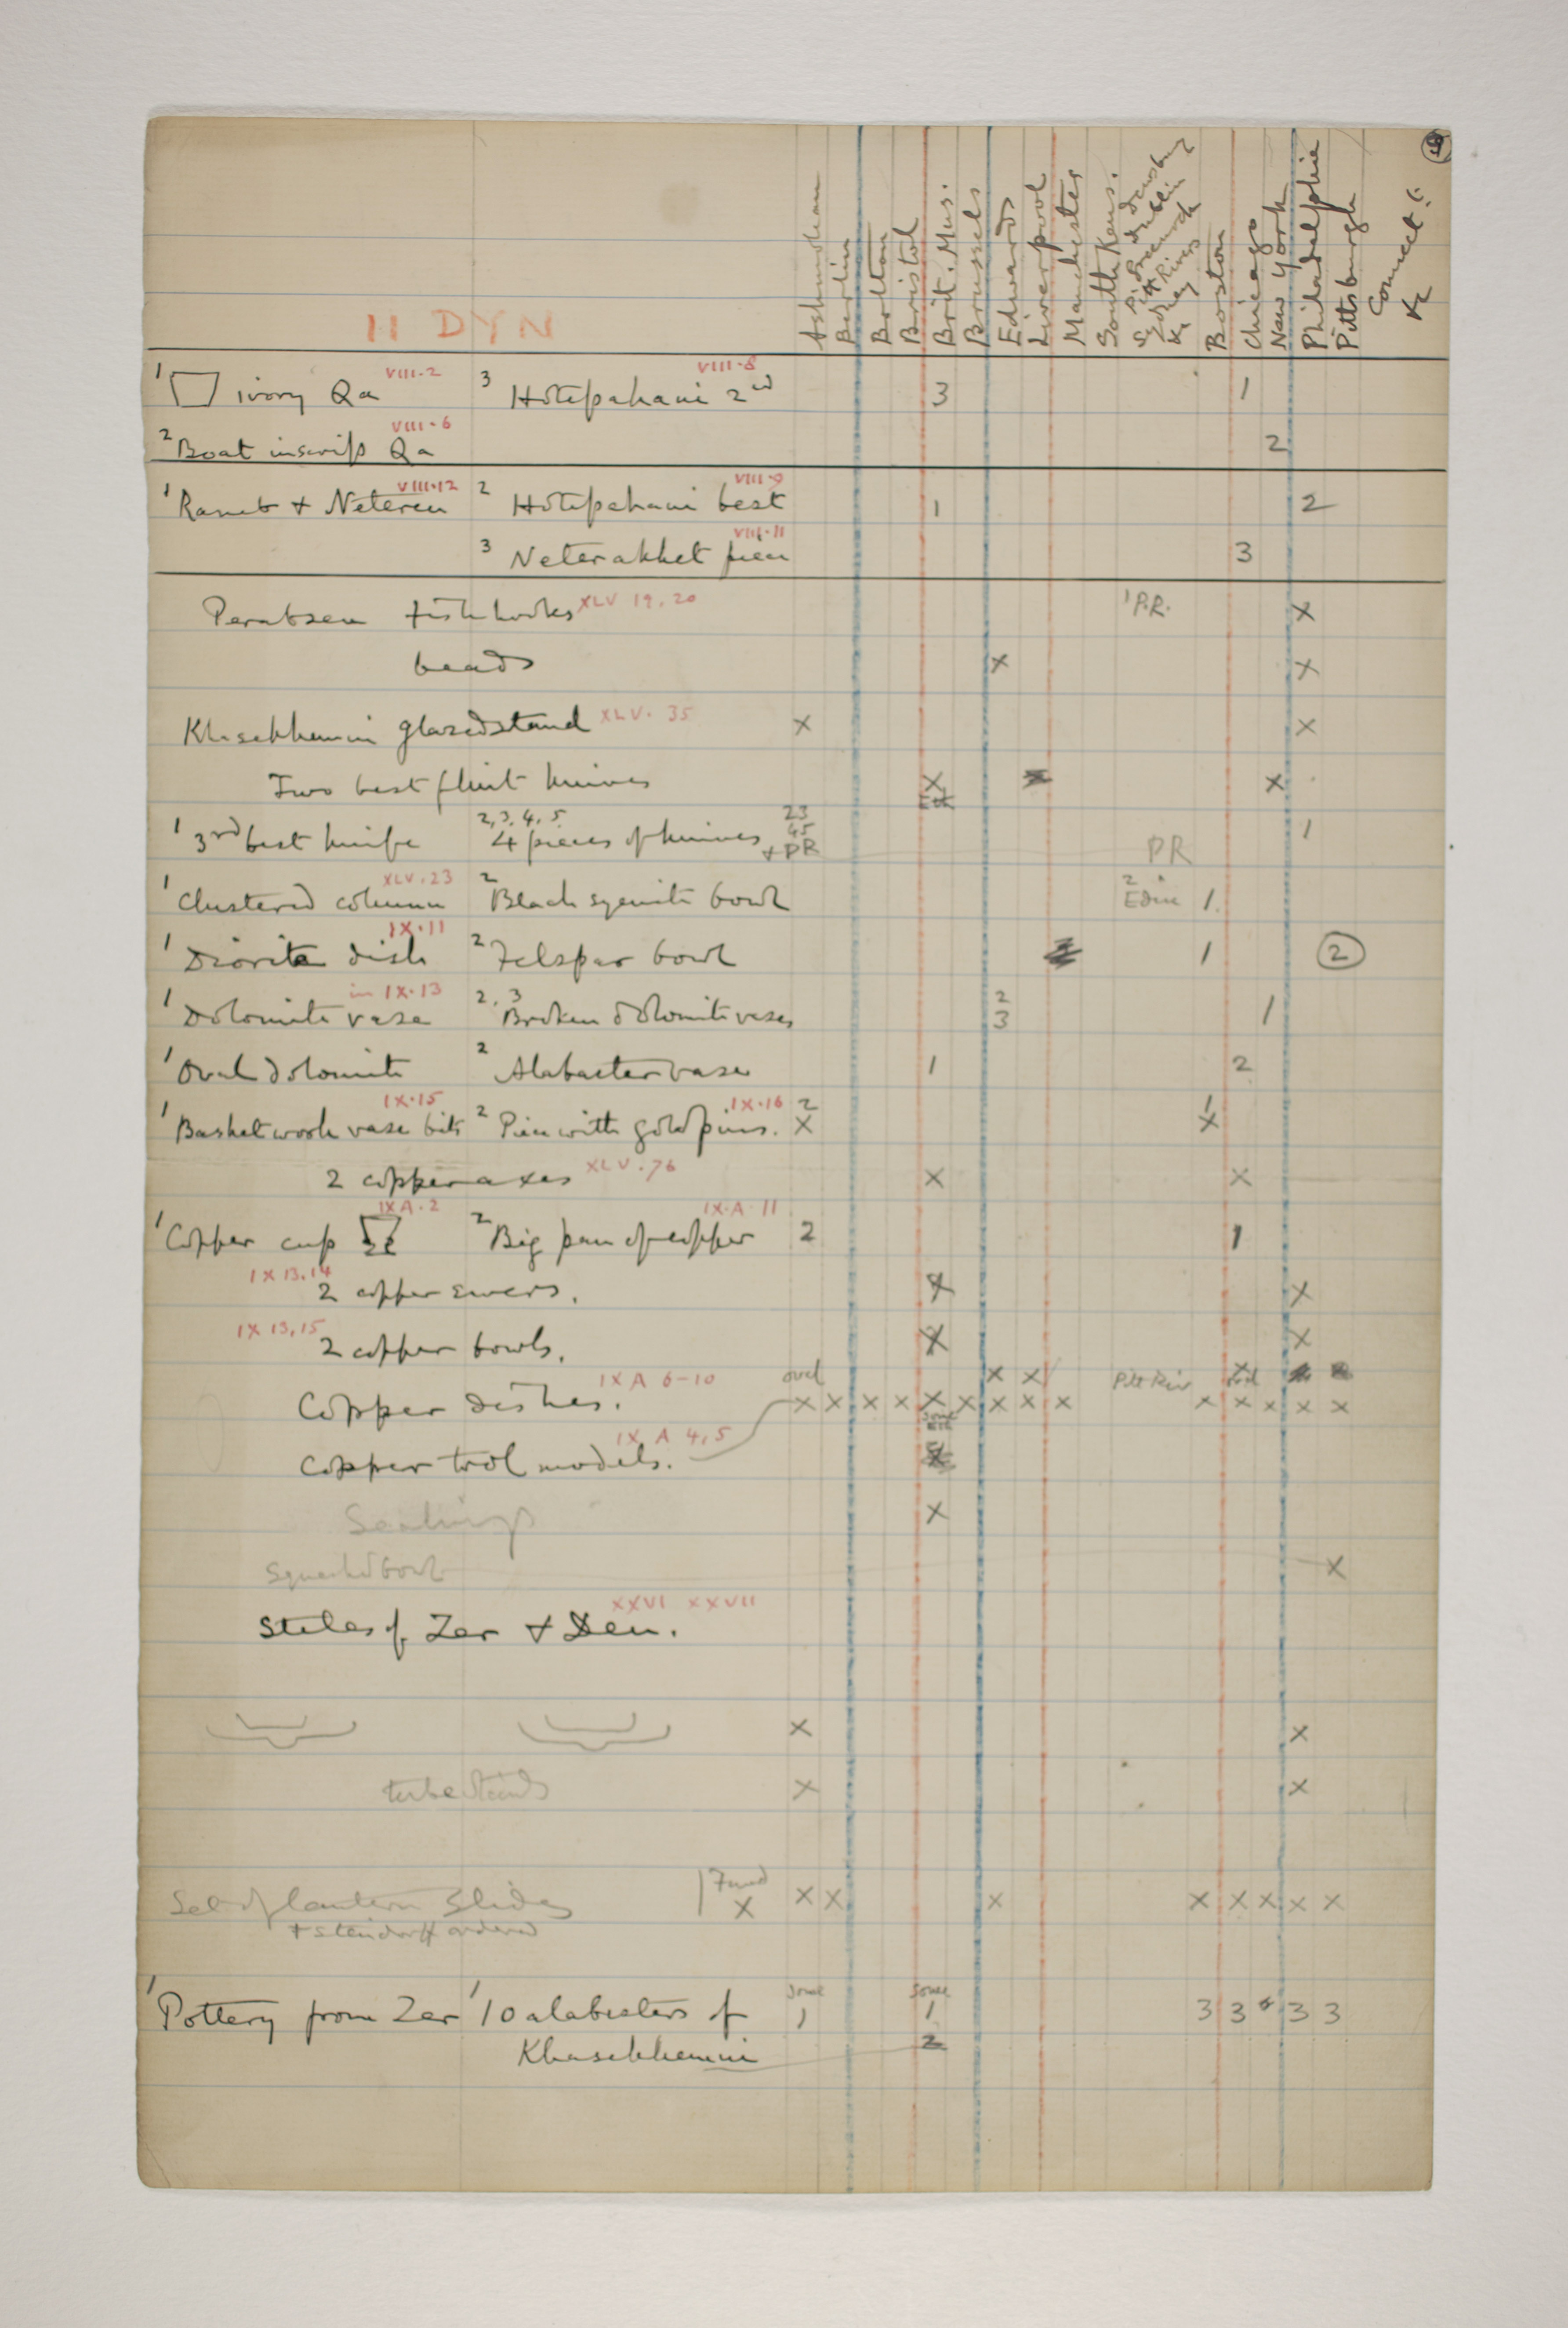 II DYN
Ashmolean Berlin Bolton Bristol Brit. Mus. Brussels Edwards Liverpool Manchester South Kens. Dewsbury Dublin Greenock Pitt Rivers Sydney Boston Chicago New York Philadelphia Pittsburgh Connect.
1 ivory Qa VIII·2 3 Hotepahaui 2nd VIII·8 3 1
2 Boat inscrip Qa VIII·6 2
1 Raneb + Neteren VIII·12 2 Hotepahaui best VIII·9 1 2
3 Neterakhet piece VIII·11 3
Perabsen fish hooks XLV 19, 20 1 P.R. X
beads X X
Khasekhemui glazed stand XLV· 35 X X
Two best flint knives X X
1 3rd best knife 2, 3, 4, 5 4 pieces of knives 23 45 + PR PR 1
1 Clustered column XLV·23 2 Black syenite bowl 2 Edin 1.
1 Diorite dish IX·11 2 Felspar bowl 1 2
1 Dolomite vase in IX·13 2, 3 Broken dolomite vases 2 3 1
1 Oval dolomite 2 Alabaster vase 1 2
1 Basketwork vase bits IX·15 2 Piece with gold pins. IX·16 2 X 1 X
2 copper axes XLV·76 X X
1 Copper cup IXA·2 2 Big pan of copper IX·A 11 2 1
IX 13, 14 2 copper ewers. X X
IX 13, 15 2 copper bowls. X X
Copper dishes. IX A 6-10 oval X X X X X X X X X X X Pitt Riv X X X X X X
Copper tool models. IX A 4, 5
Sealings X
Squashed bowl X
Steles of Zer + Den. XXVI XXVII
X X
tube stands X X
Set of lantern slides Fund X X X X X X X X X
+ Steindorff ordered
1 Pottery from Zer 1 10 alabasters of some 1 some 1 3 3 3 3
Khasekhemui 2